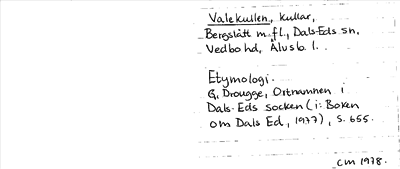 Valekullen, kullar,
Bergslätt m.fl., Dals-Eds sn,
Vedbo hd, Älvsb l.
Etymologi.
G. Drougge, Ortnamnen i
Dals-Eds socken (i: Boken
om Dals Ed, 1977), s. 655.
CM 1978.